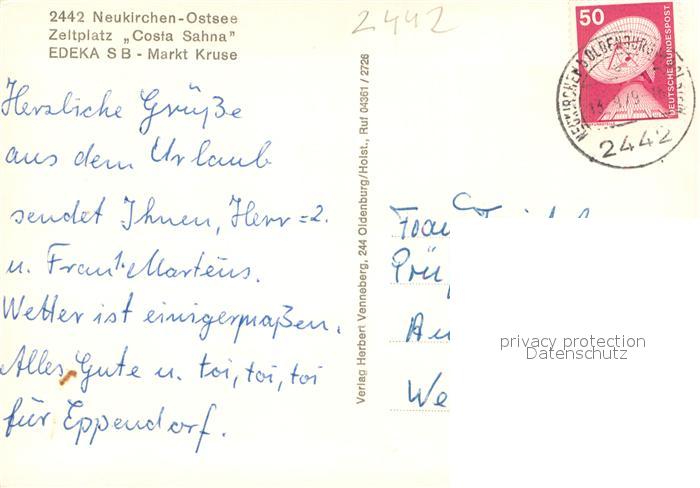 2442 Neukirchen-Ostsee
Zeltplatz „Costa Sahna"
EDEKA S B - Markt Kruse
2442
50
DEUTSCHE BUNDESPOST
NEUKIRCHEN
2442
Herzliche Grüße
aus dem Urlaub
sendet Ihnen, Herr =2.
u. Frau 1. Martens.
Wetter ist einigermaßen.
Alles Gute u. toi, toi, toi
für Eppendorf.
Verlag Herbert Venneberg, 244 Oldenburg/Holst., Ruf 04361 / 2726
Frau
privacy protection
Datenschutz